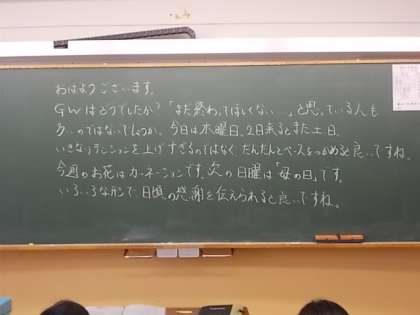 おはようございます。
GWはどうでしたか？「まだ終わってほしくない…」と思っている人も
多いのではないでしょうか。今日は木曜日。2日来るとまた土日。
いきなりテンションを上げすぎるのではなく、だんだんとペースをつかめると良いですね。
今週のお花はカーネーションです。次の日曜は「母の日」です。
いろいろな形で、日頃の感謝を伝えられると良いですね。